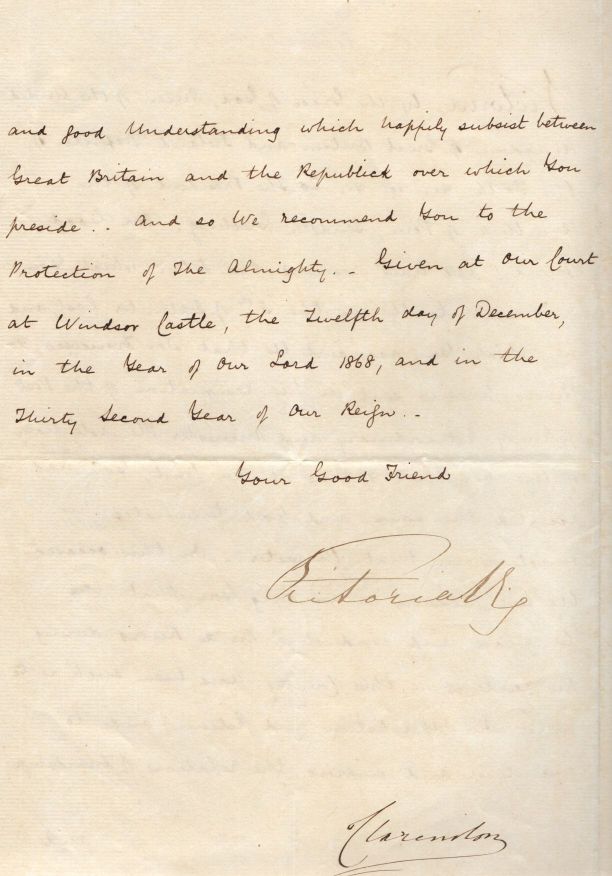 and good Understanding which happily subsist between
Great Britain and the Republick over which You
preside.. And so We recommend You to the
Protection of The Almighty.. Given at Our Court
at Windsor Castle, the Twelfth day of December,
in the Year of Our Lord 1868, and in the
Thirty Second Year of Our Reign..
Your Good Friend
Victoria R
Clarendon